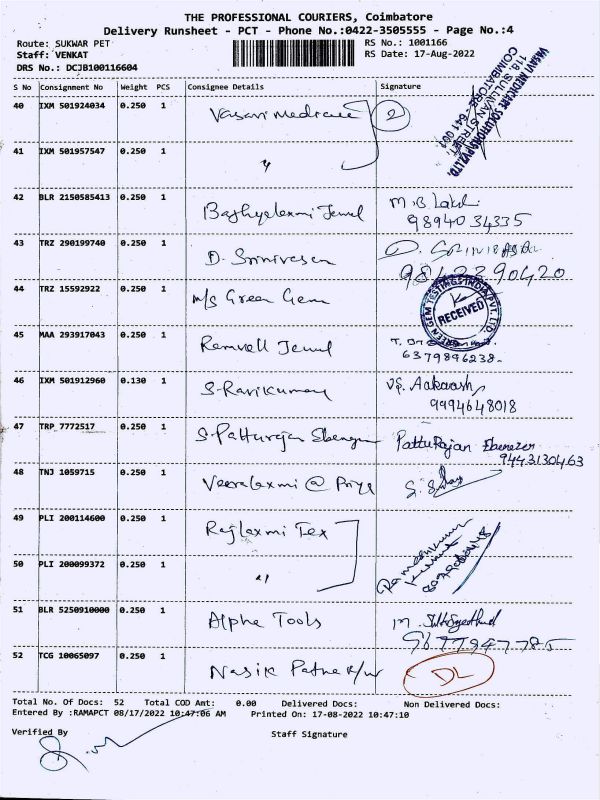 THE PROFESSIONAL COURIERS, Coimbatore
Delivery Runsheet - PCT - Phone No.:0422-3505555 - Page No.:4
Route: SUKWAR PET RS No.: 1001166
Staff: VENKAT RS Date: 17-Aug-2022
DRS No.: DCJB100116604
VASAVI MEDICARE SOLUTIONS PVT LTD.
118, SULLIVAN STREET,
COIMBATORE - 641 001
S No Consignment No Weight PCS Consignee Details Signature
40 IXM 501924034 0.250 1 Vasavi Medicare 2
41 IXM 501957547 0.250 1 "
42 BLR 2150585413 0.250 1 Baghyalaxmi Jewel M.B. Laksh
9894034335
43 TRZ 290199740 0.250 1 D. Srinivasan D. SRINIVASAN
9842390420
44 TRZ 15592922 0.250 1 M/s Green Gem
GREEN GEM TESTINGS INDIA PVT. LTD.
RECEIVED
45 MAA 293917043 0.250 1 Ramvell Jewel
6379896238.
46 IXM 501912960 0.130 1 S. Ravikumar V.S. Aakaash
9994648018
47 TRP 7772517 0.250 1 S. Patturajan Ebengun PattuRajan Ebenezer
9443130463
48 TNJ 1059715 0.250 1 Veeralaxmi @ Priya
49 PLI 200114600 0.250 1 Rajlaxmi Tex Rameshkumar
50 PLI 200099372 0.250 1 "
51 BLR 5250910000 0.250 1 Alpha Tools
9677947785
52 TCG 10065097 0.250 1 Nasik DL
Total No. Of Docs: 52 Total COD Amt: 0.00 Delivered Docs: Non Delivered Docs:
Entered By :RAMAPCT 08/17/2022 10:47:06 AM Printed On: 17-08-2022 10:47:10
Verified By Staff Signature